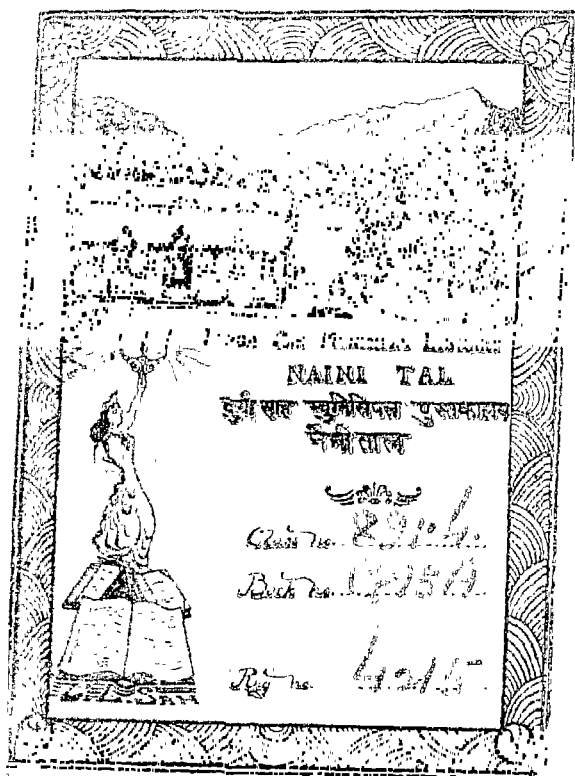 Durga Sah Municipal Library
NAINI TAL
दुर्गा साह म्युनिसिपल पुस्तकालय
नैनीताल
Class no. 891.4
Book no.
Reg no. 4215
L.L.SAH